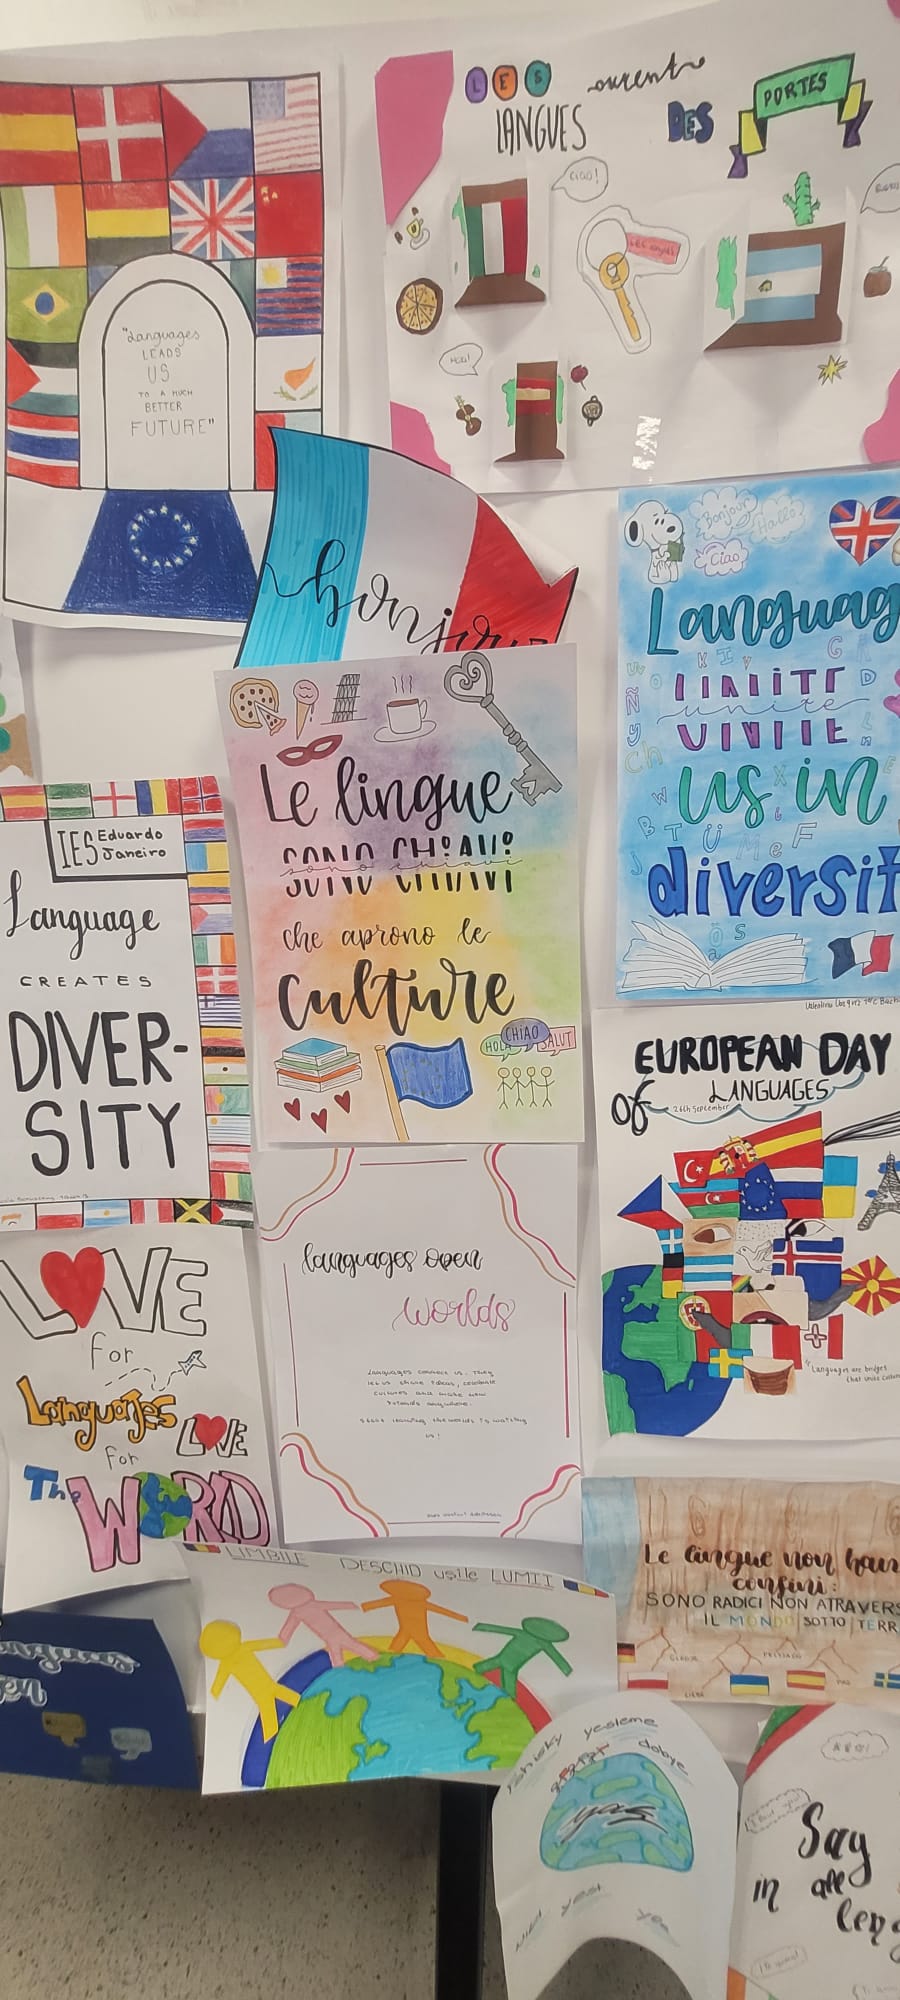 "Languages
LEADS
US
TO A MUCH
BETTER
FUTURE"
LES
LANGUES
ouvrent
DES
PORTES
CIAO!
HOLA!
bonjour
Bonjour
Hallo
Ciao
Languag
UNITE
unite
us in
diversit
Le lingue
SONO CHIAVI
sono chiavi
che aprono le
culture
HOLA
CHIAO
SALUT
IES Eduardo
Janeiro
Language
CREATES
DIVER-
SITY
EUROPEAN DAY
of LANGUAGES
26th September
"Languages are bridges
that unite
LOVE
for
Languages
LOVE
for
The WORLD
languages open
worlds
Languages connect us. They
let us share ideas, celebrate
cultures and make new
friends anywhere.
Start learning, the world is waiting
us!
LIMBILE DESCHID ușile LUMII
Le lingue non han
confini:
SONO RADICI NON ATRAVERS
IL MONDO SOTTO TERR
Say
in all